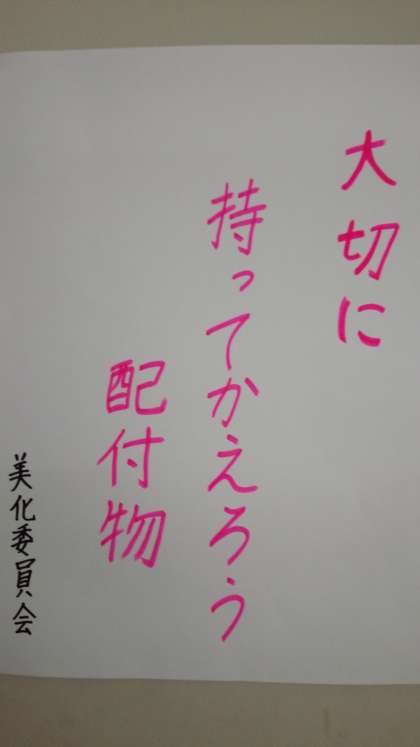 大切に
持ってかえろう
配付物
美化委員会